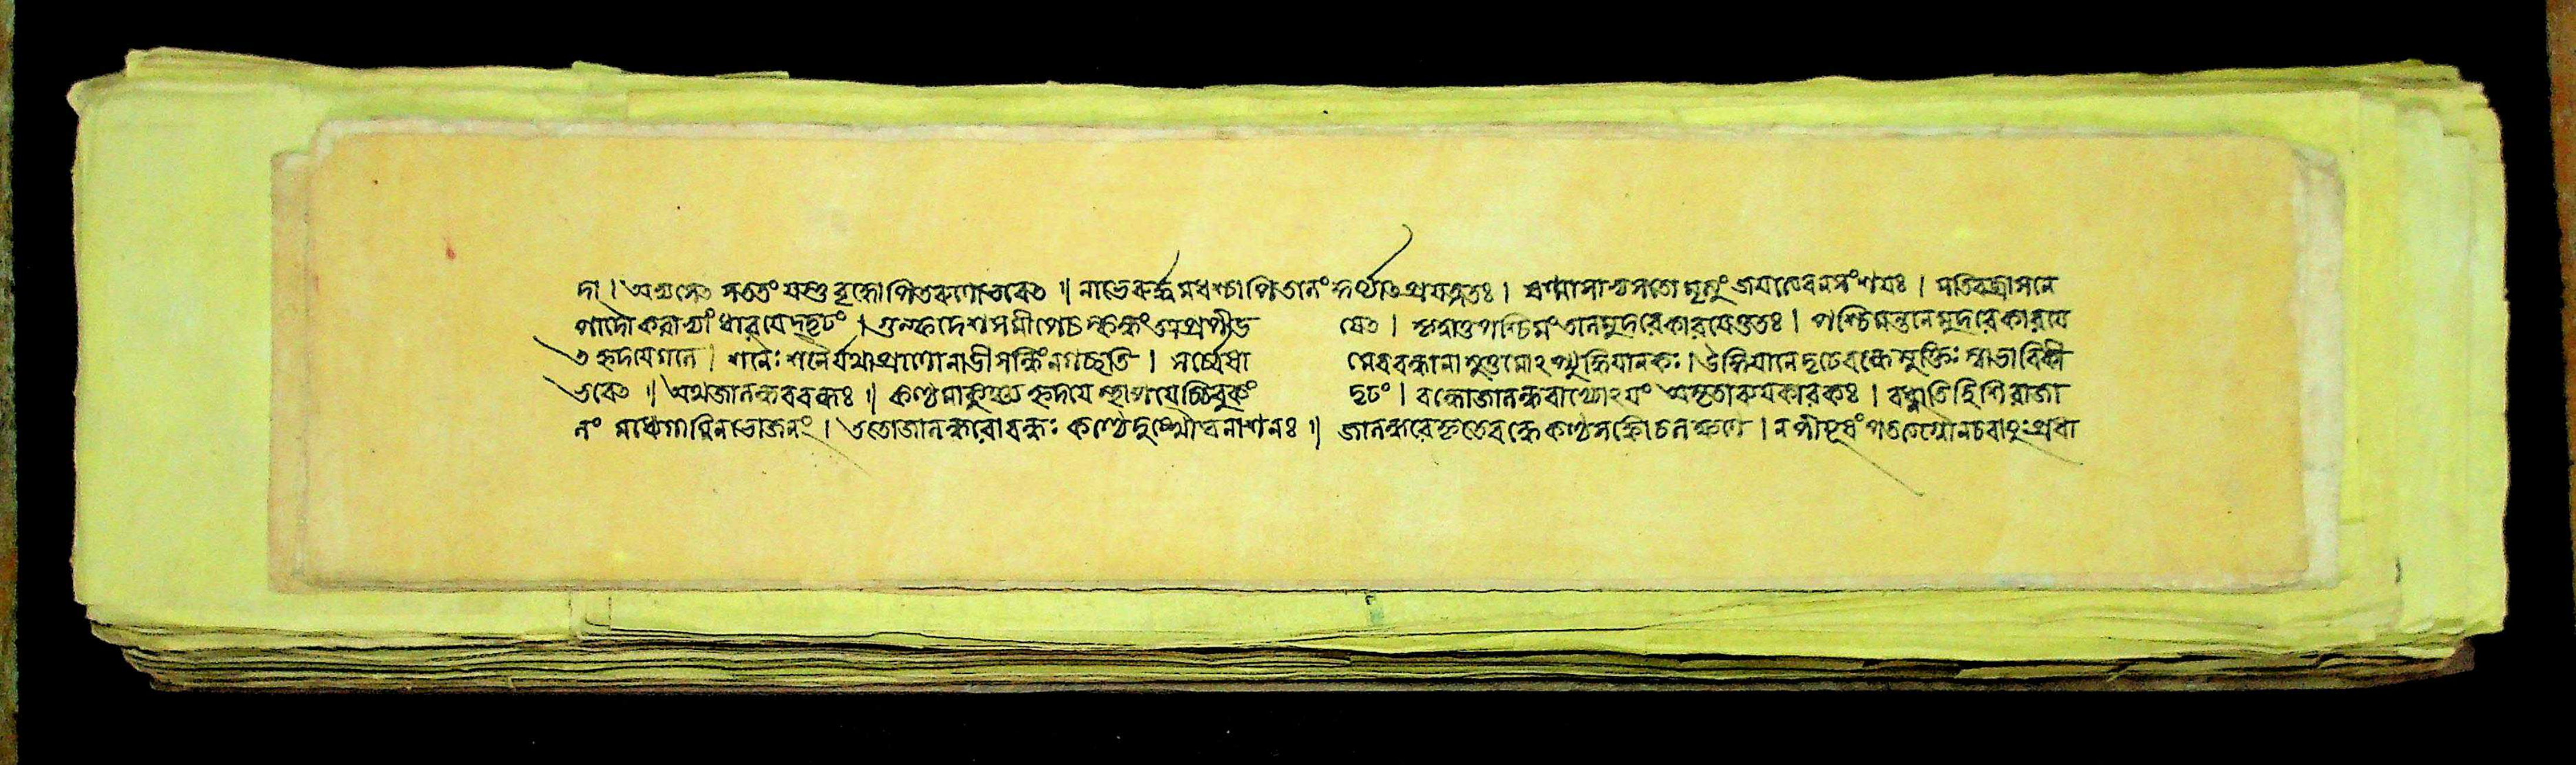 দা। অভ্যসেৎ সততং যস্তু বৃদ্ধোপিতরুণোভবেৎ॥ নাভেরূর্দ্ধমধশ্চাপিতানং কুর্য্যাৎপ্রযত্নতঃ। ষণ্মাসাভ্যসতোমৃত্যুং জযত্যেবনসংশযঃ। সতিবজ্রাসনে
পাদৌকরাভ্যাং ধারযেদ্দৃঢং। গুল্ফদেশসমীপেচকন্দংতত্রপ্রপীড যেৎ। পশ্চিমংতানমুদরেকারযেত্ততঃ। পশ্চিমন্তানমুদরেকারযে
ৎহৃদযেগলে। শনৈঃশনৈর্যথাপ্রাণোনাভীসন্ধিংনগচ্ছতি। সর্ব্বেষা মেববন্ধানামুত্তমোঽপ্যুড্ডিযানকঃ। উড্ডিযানেদৃঢেবন্ধেমুক্তিঃস্বাভাবিকী
ভবেৎ॥ অথজালন্ধরবন্ধঃ॥ কণ্ঠমাকুঞ্চ্যহৃদযেস্থাপযেচ্চিবুকং দৃঢং। বন্ধোজালন্ধরাখ্যোঽযং অমৃতাব্যযকারকঃ। বধ্নাতিহিশিরাজা
লং নাধোগামিনভোজলং। ততোজালন্ধরোবন্ধঃ কণ্ঠেদুঃখৌঘনাশনঃ॥ জালন্ধরেকৃতেবন্ধেকণ্ঠসঙ্কোচলক্ষণে। নপীযূষংপতত্যগ্নৌনচবাযুঃপ্রধা